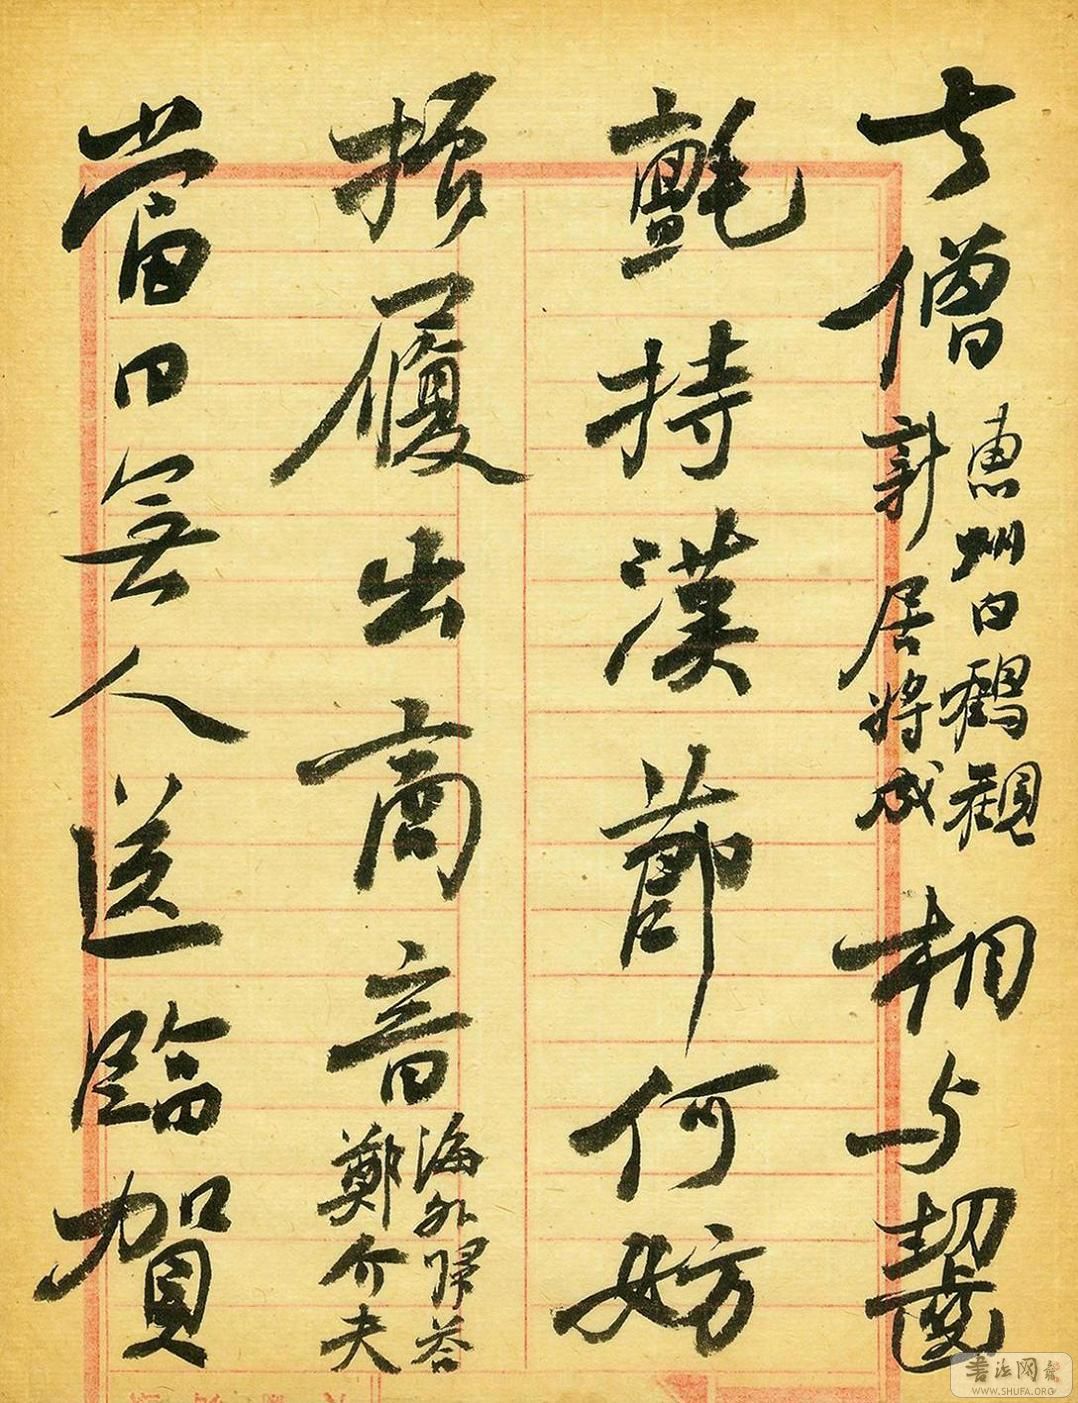 去僧 惠州白鶴觀 新居將成 相与齧
氈持漢節何妨
振履出商音 海外歸答 鄭介夫
當日無人送臨賀
書法网
WWW.SHUFA.ORG